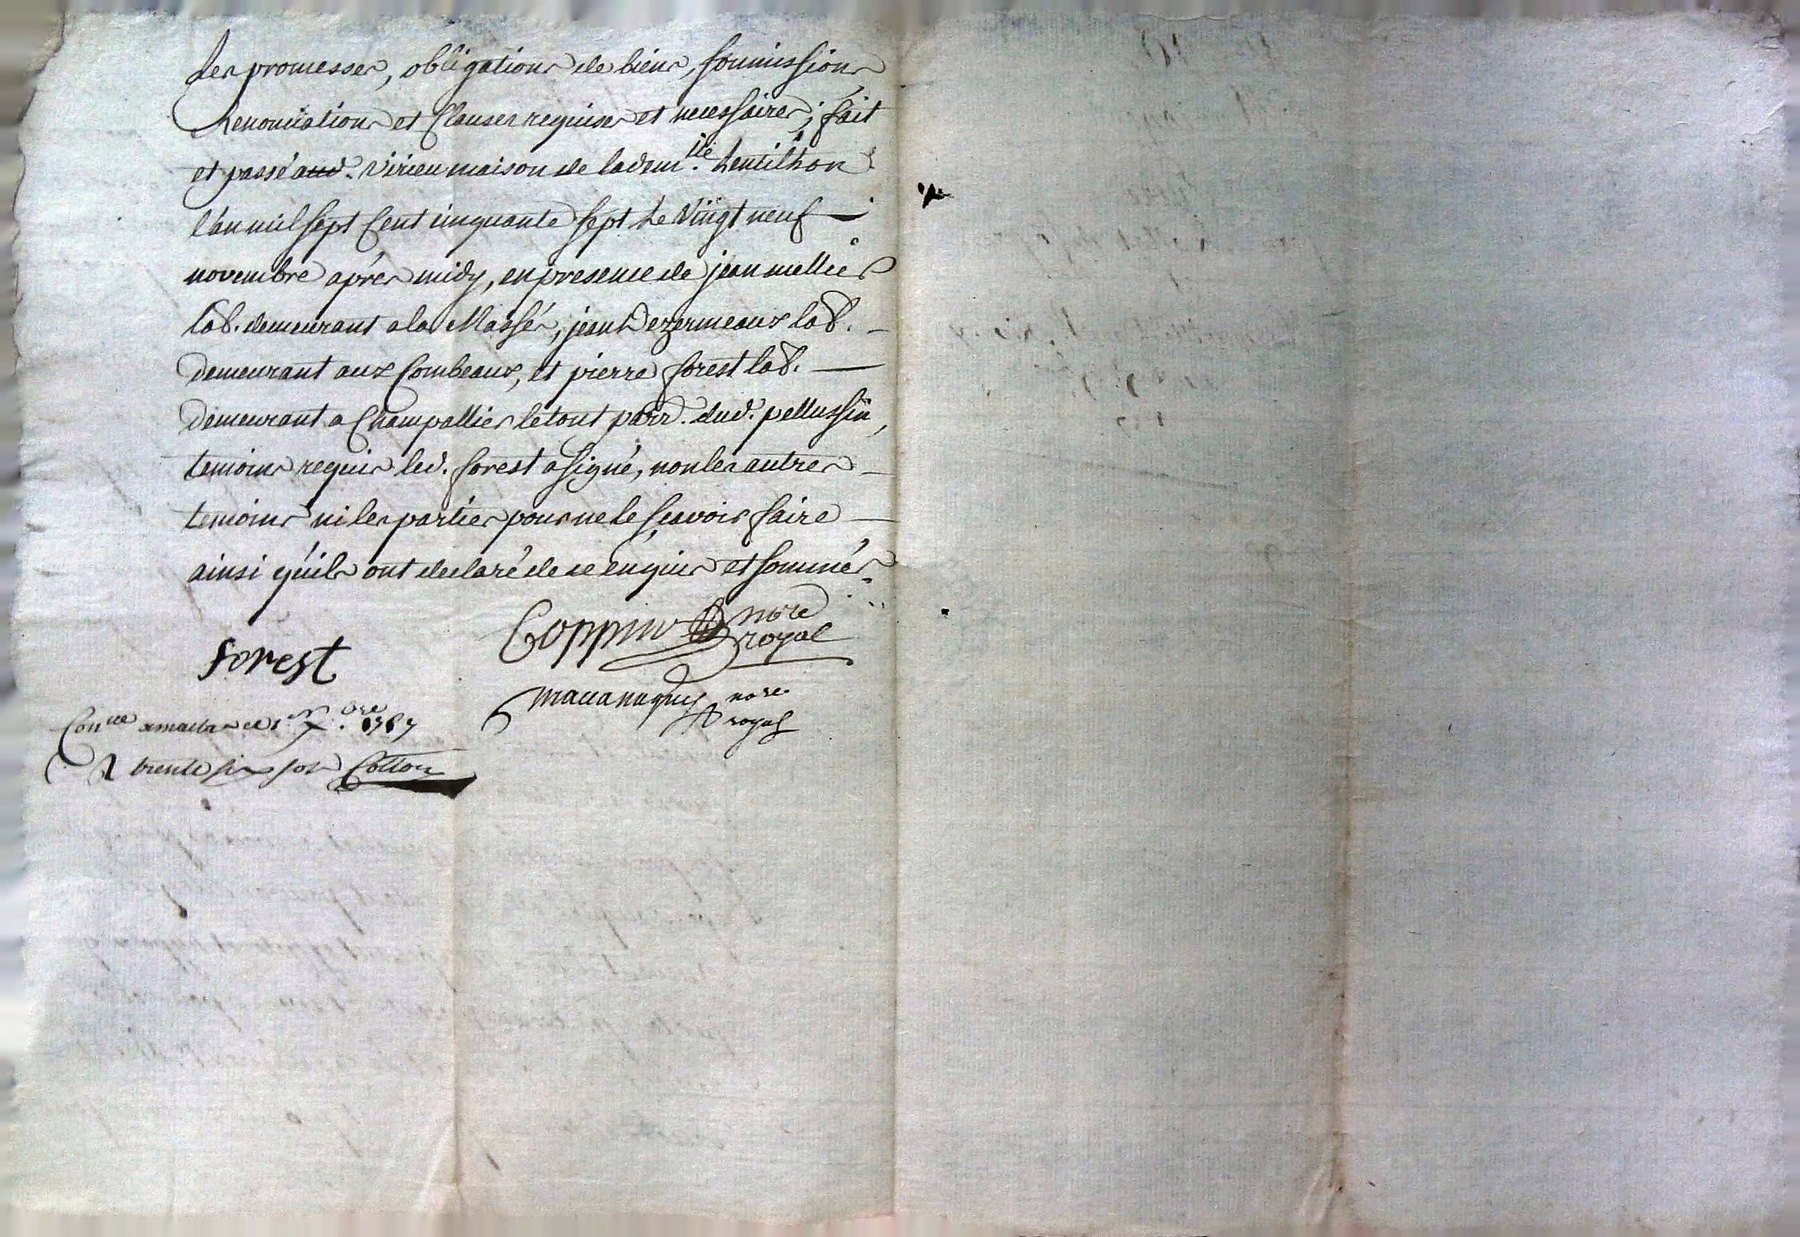 les promesses, obligations de biens, soumissions
Renonciations et Clauses requises et necessaires; fait
et passé aud. Virieu maison de lad dem.lle Lentilhon
l'an mil sept Cent cinquante sept le Vingt neuf
novembre après midy, en presence de jean mellier
lab. demeurant a la Massés, jean Dezermeaux lab.
demeurant aux Combeaux, et pierre forest lab.
demeurant a Champallier le tout parr. dud. pellussin,
temoins requis led. forest a signé, non les autres
temoins ni les parties pour ne le sçavoir faire
ainsi qu'ils ont declaré de ce enquis et sommés.
Coppin nore
royal
forest
mauanagny nore
royal
Con.lle ce 1. X.bre 1757
R trente six sols Cotton